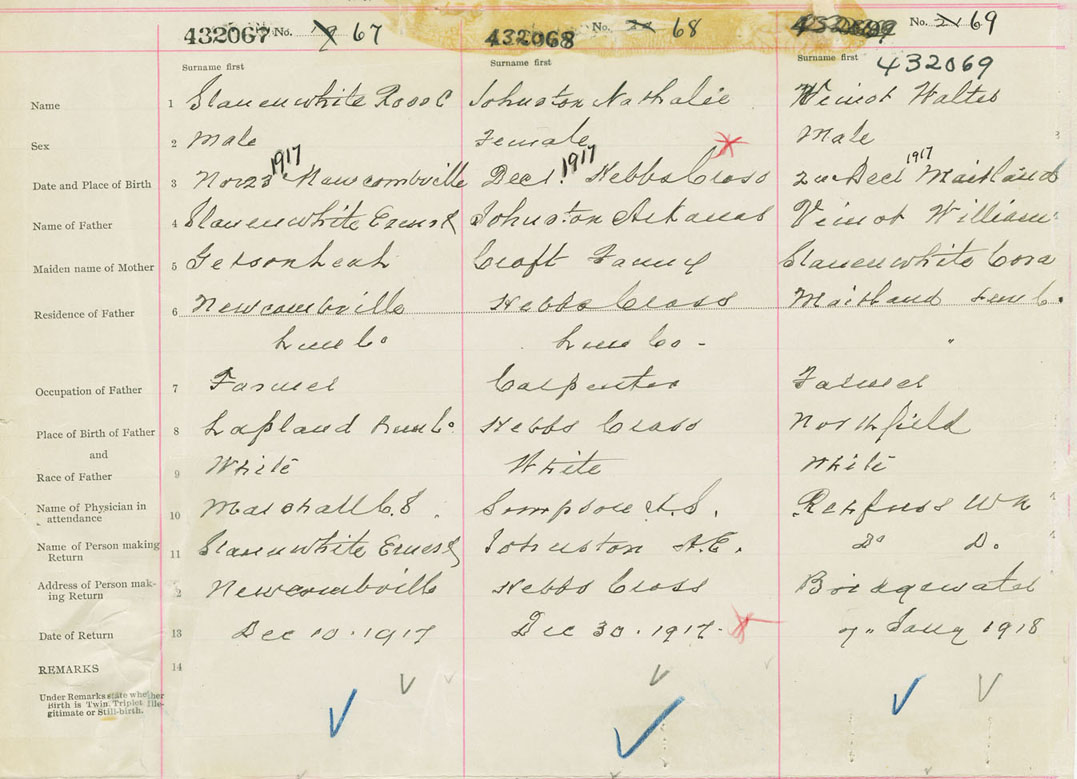 432067 No. 19 67 432068 No. 20 68 432069 No. 21 69
Surname first Surname first Surname first 432069
Name 1 Slauenwhite Ross C Johnston Nathalie Veinot Walter
Sex 2 Male Female Male
1917 1917 1917
Date and Place of Birth 3 Nov 23 Newcombville Dec 1. Hebbs Cross 2" Dec Maitland
Name of Father 4 Slauenwhite Ernest Johnston Arkanas Veinot William
Maiden name of Mother 5 Getson Leah Croft Fanny Slauenwhite Cora
Residence of Father 6 Newcombville Hebbs Cross Maitland Lun C.
Lun Co Lun Co - "
Occupation of Father 7 Farmer Carpenter Farmer
Place of Birth of Father 8 Lapland Lun Co. Hebbs Cross Northfield
and
Race of Father 9 White White White
Name of Physician in 10 Marshall C.S. Simpson H.S. Rehfuss W N
attendance
Name of Person making 11 Slauenwhite Ernest Johnston A.E. Do Do
Return
Address of Person mak- 12 Newcombville Hebbs Cross Bridgewater
ing Return
Date of Return 13 Dec 10. 1917 Dec 30. 1917- 7" Jany 1918
REMARKS 14
Under Remarks state whether
Birth is Twin, Triplet Ille-
gitimate or Still-birth.